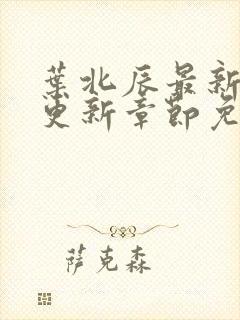 葉北辰最新
更新章節免
萨克森